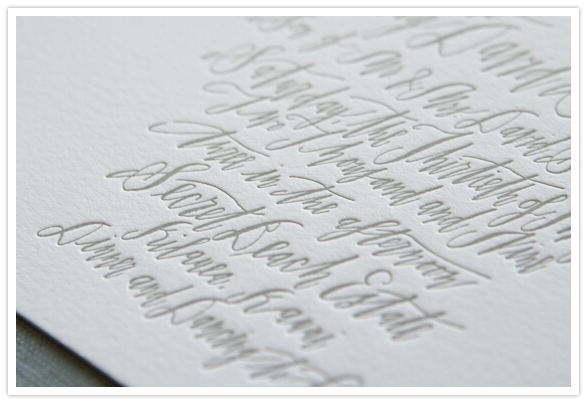 Son of Mr. & Mrs. David
Saturday, the Thirtieth of
Two Thousand and Nine
in the afternoon
Secret Beach Estate
Kilauea, Kauai
Dinner and Dancing